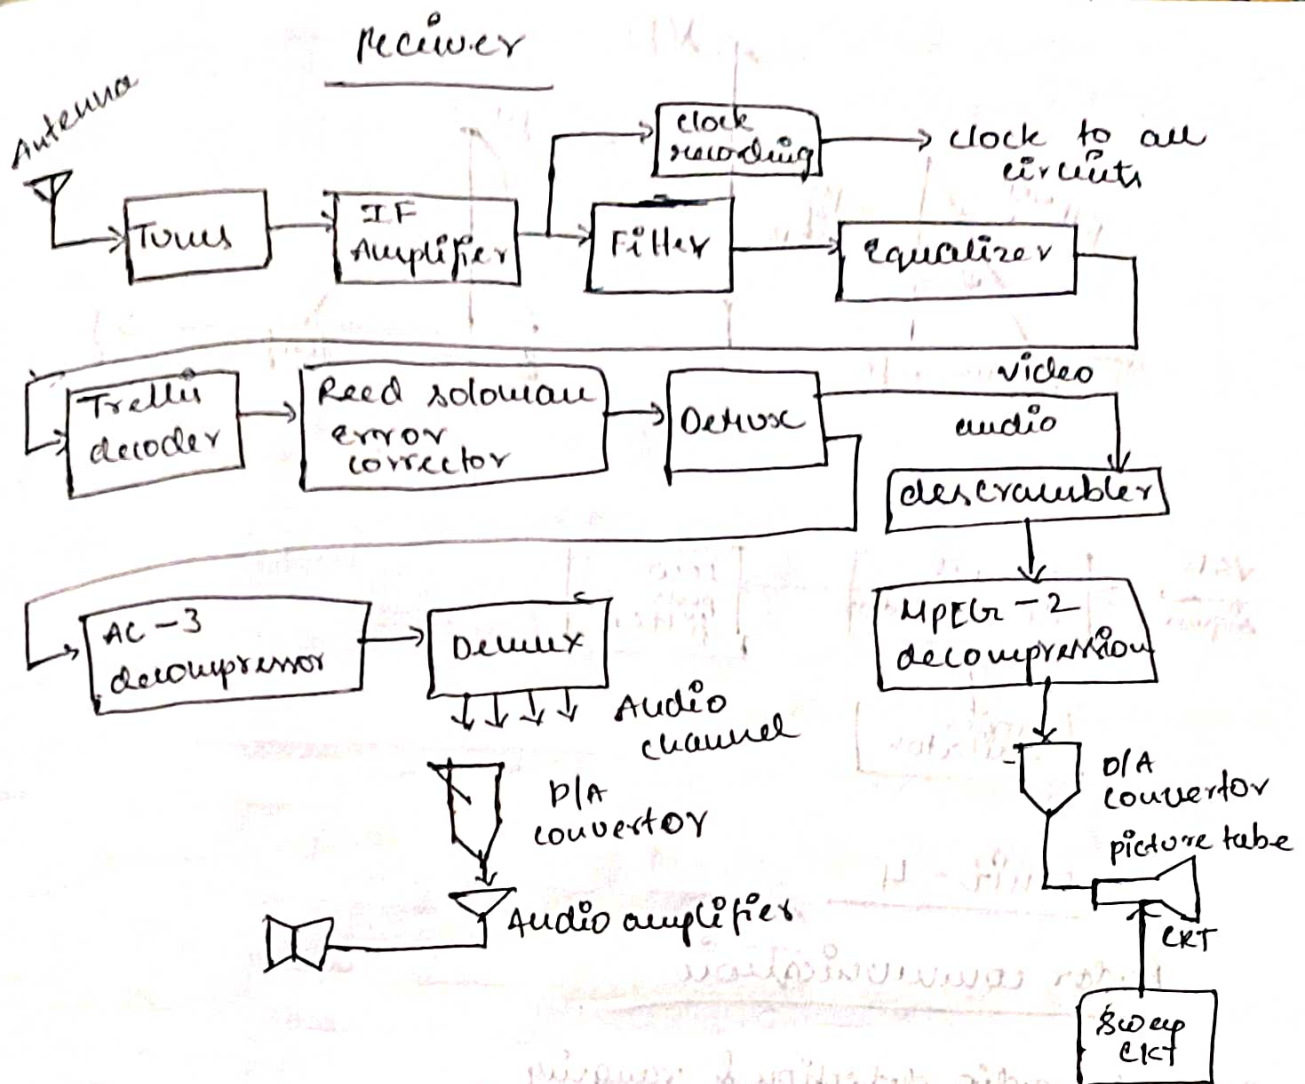 reciever
Antenna
Tuner
IF
Amplifier
clock
recording
clock to all
circuits
Filter
Equalizer
Trellis
decoder
Reed soloman
error
corrector
Demux
video
audio
descrambler
AC-3
decompressor
Demux
Audio
channel
MPEG-2
decompression
D/A
convertor
D/A
convertor
picture tabe
Audio amplifier
CRT
Sweep
CKT